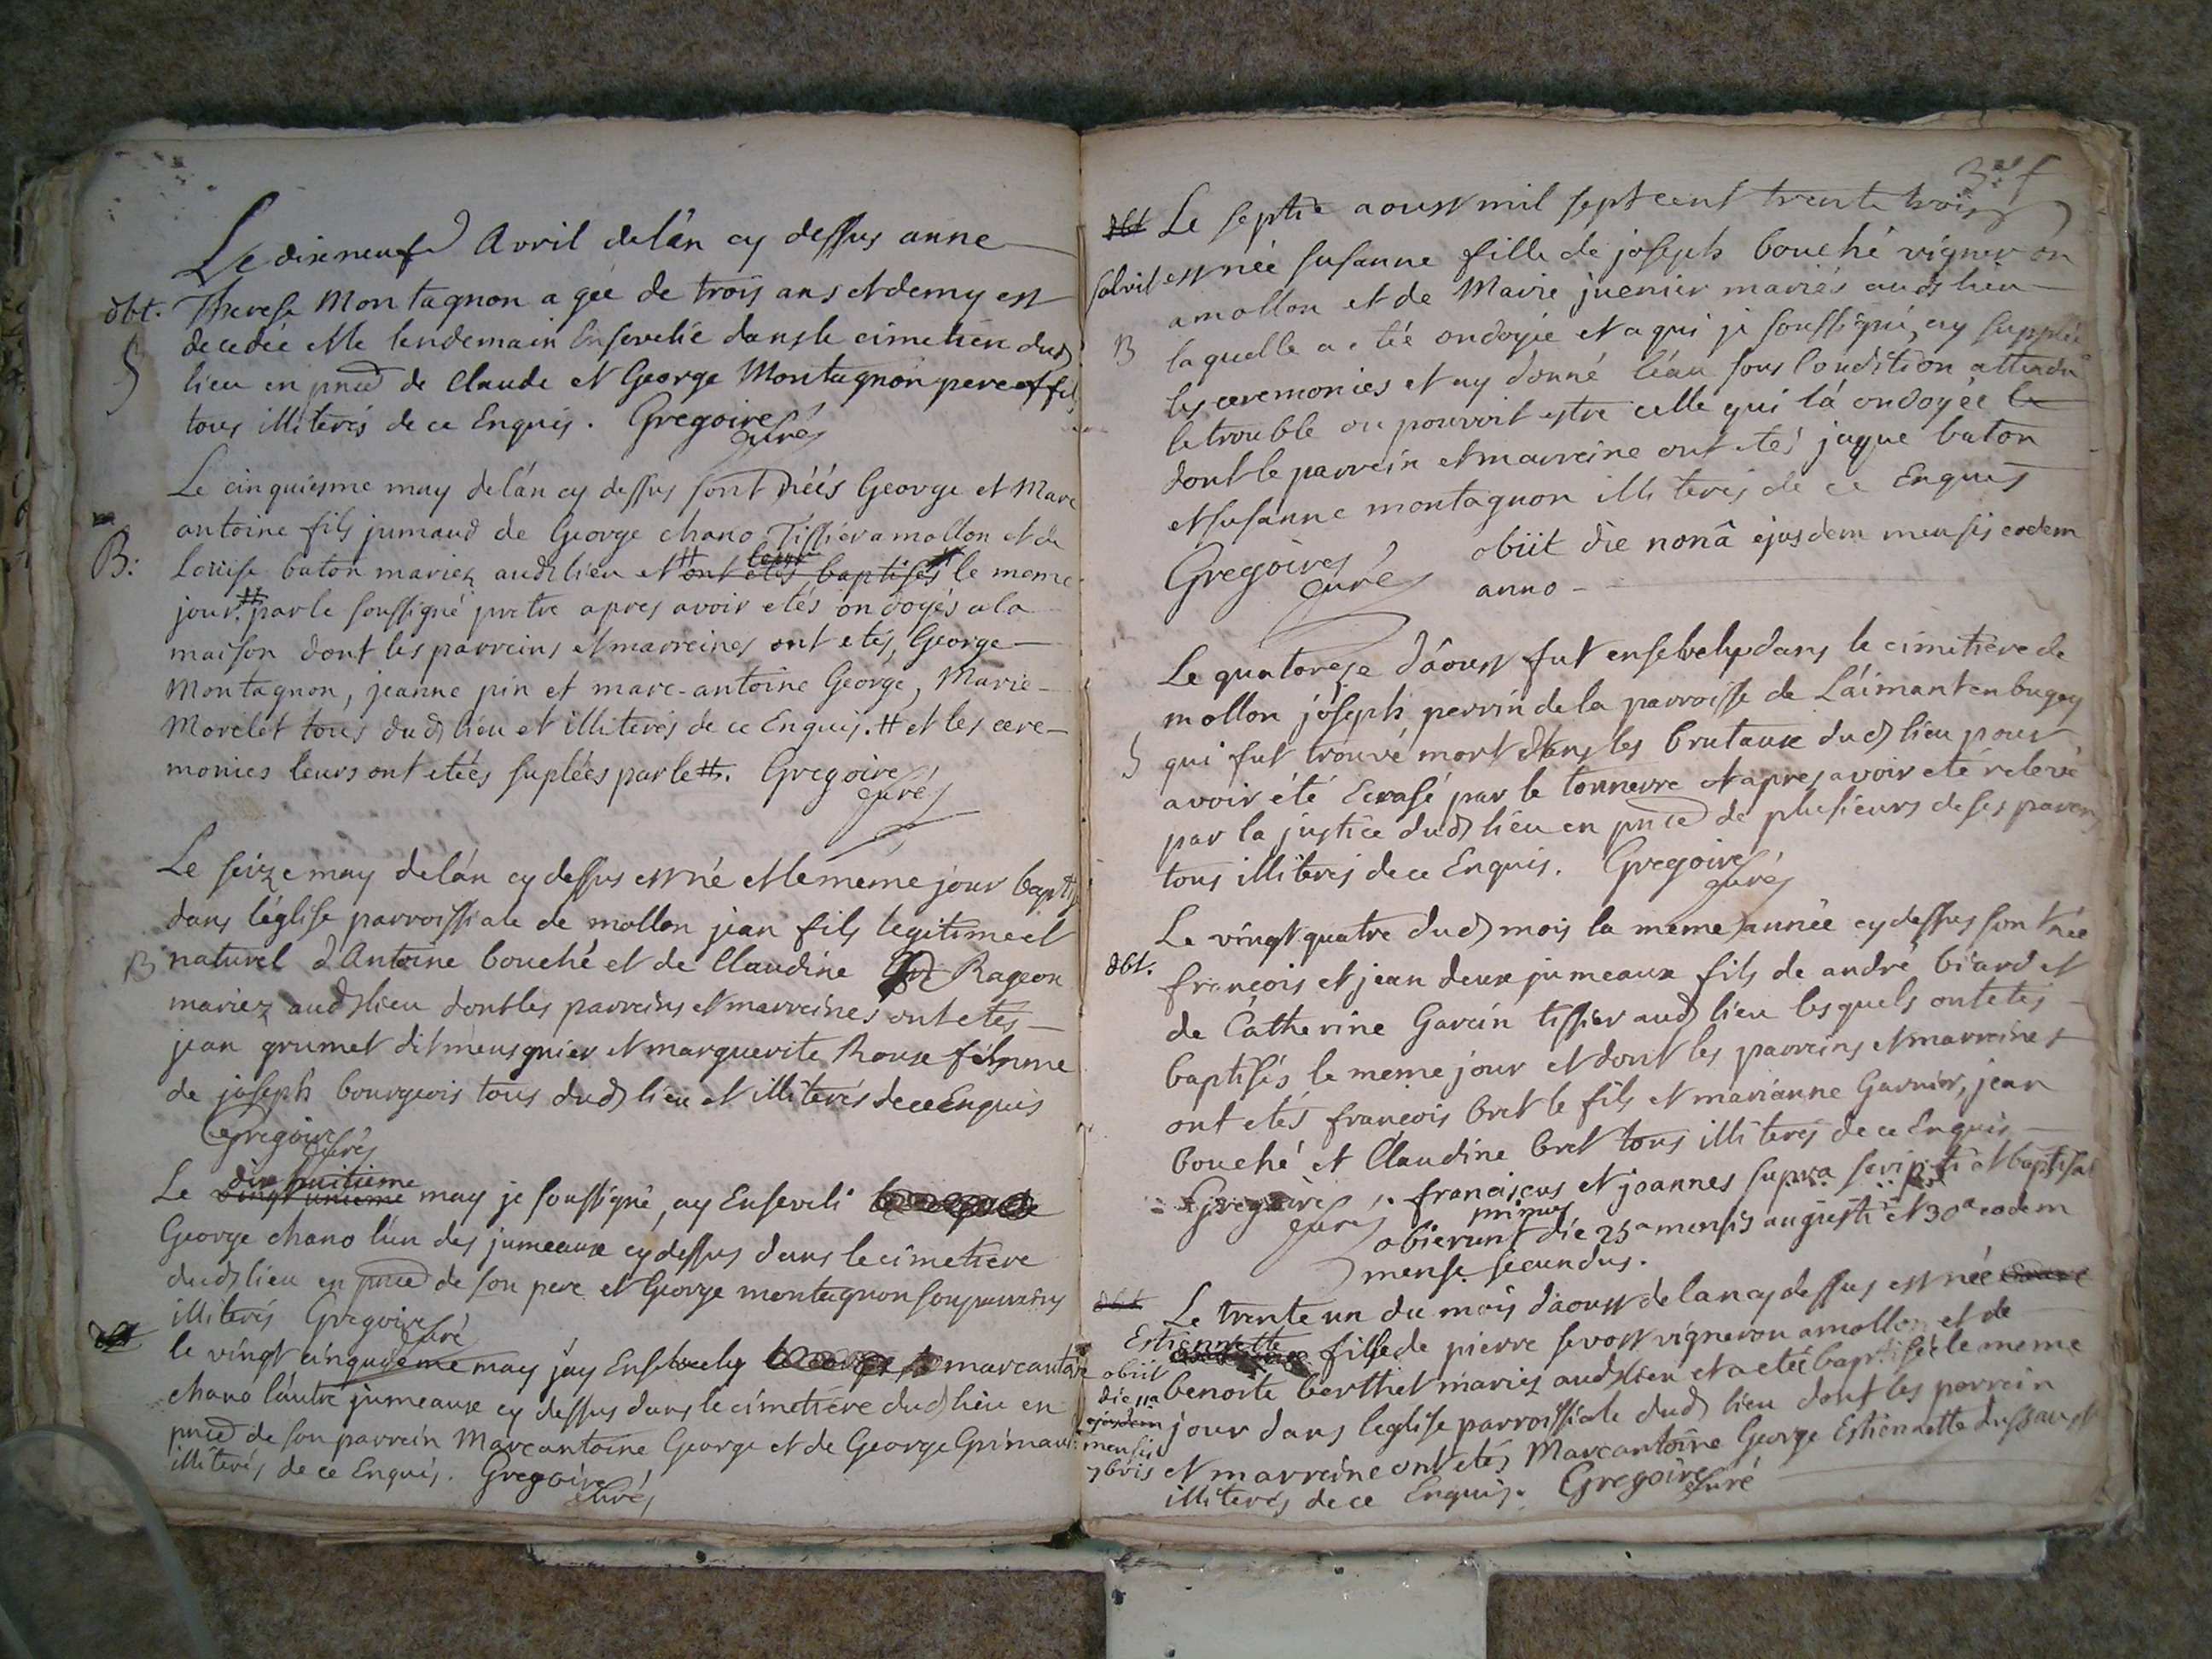 Le dixneuf avril delân cy dessus anne
obt. Therese Montagnon agée de trois ans et demy est
decedée et le lendemain Ensevelie dans le cimetiere dud
S lieu en pnce de Claude et George Montagnon pere et fils
tous illiterés de ce Enquis. Gregoire
curé
Le cinquiesme may delân cy dessus sont néés George et Marc
antoine fils jumaud de George chano Tissier a mollon et de
B: Loüise baton mariez aud lieu et # ont etés baptisés # le meme
jour. # par le soussigné pretre apres avoir etés ondoyés a la
maison dont les parreins et marreines ont etés, George
Montagnon, jeanne pin et marc-antoine George, Marie
Morelet tous dud lieu et illiterés de ce Enquis. # et les cere-
monies leurs ont etées suplées par le #. Gregoire
curé
Le seize may delân cy dessus est né et le même jour baptisé
dans l'église parroissiale de mollon jean fils legitime et
B naturel d'Antoine bouché et de Claudine Rageon
mariez aud lieu dont les parreins et marreines ont etés
jean grumet dit meusgnier et marguerite Roux femme
de joseph bourgeois tous dud lieu et illiterés de ce Enquis
Gregoire
curé
dix huitieme
Le vingt unieme may je soussigné, ay Enseveli
George chano l'un des jumeaux cy dessus dans le cimetiere
dud lieu en pnce de son pere et George montagnon son parrein
illiterés Gregoire
curé
le vingt cinquieme may j'ay Ensevely marcantoine
chano l'autre jumeaux cy dessus dans le cimetiere dud lieu en
pnce de son parrein Marcantoine George et de George Grimau
illiterés de ce Enquis. Gregoire
curé
obt Le septie aoust mil sept cent trente trois
solvit est née susanne fille de joseph bouché vigneron
a mollon et de Marie juenier mariés aud lieu
B laquelle a été ondoyée et a qui je soussigné, ay supplée
les ceremonies et ay donné l'éau sous Condition attendu
le trouble ou pouvoit estre celle qui l'a ondoyée le
dont le parrein et marreine ont etés jaque baton
et susanne montagnon illiterés de ce Enquis
obiit die nonâ ejusdem mensis eodem
Gregoire
curé anno -
Le quatorze d'âoust fut ensevely dans le cimetiere de
mollon joseph perrin de la parroisse de L'aimant en bugey
S qui fut trouvé mort dans les brutaux dud lieu pour
avoir été Ecrasé par le tonnerre et apres avoir eté relevé
par la justice dud lieu en pnce de plusieurs de ses parens
tous illiterés de ce Enquis. Gregoire
curé
Le vingt quatre dud mois la meme année cy dessus sont née
obt. françois et jean deux jumeaux fils de andré biard et
de Catherine Garcin tissier aud lieu lesquels ont etés
baptisés le meme jour et dont les parreins et marreines
ont etés françois bret le fils et marianne Garnier, jean
bouché et Claudine bret tous illiterés de ce Enquis
Gregoire franciscus et joannes supra scripti et baptisati
curé primus
obierunt die 25a mensis augusti et 30a eodem
mense secundus.
obt Le trente un du mois d'aoust de lan cy dessus est née
Estiennette fille de pierre sevost vigneron a mollon et de
obiit benoite berthet mariez aud lieu et a eté baptisée le meme
die 11a
ejusdem jour dans leglise parroissiale dud lieu dont les parrein
mensis
7bris et marreine ont etés Marcantoine George Estiennette
illiterés de ce Enquis. Gregoire
curé